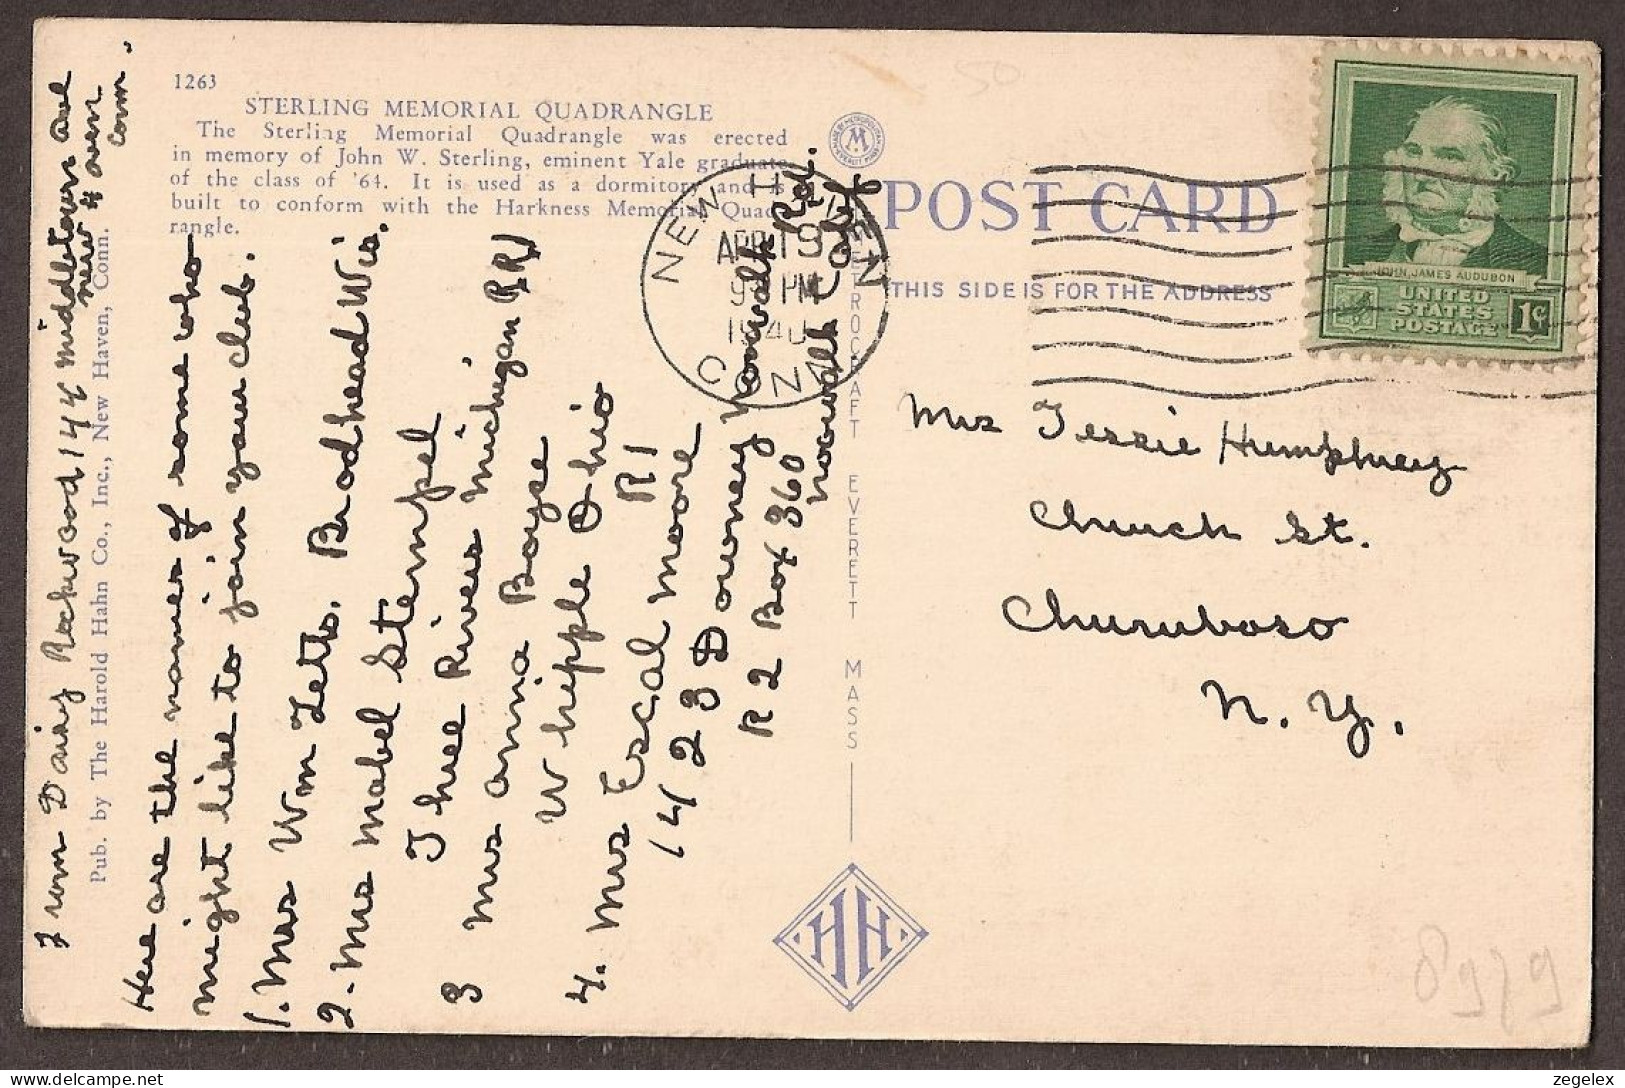 1263
STERLING MEMORIAL QUADRANGLE
The Sterling Memorial Quadrangle was erected
in memory of John W. Sterling, eminent Yale graduate
of the class of '64. It is used as a dormitory and is
built to conform with the Harkness Memorial Quad-
rangle.
Pub. by The Harold Hahn Co., Inc., New Haven, Conn.
From Daisy Rockwood 144 Middletown Ave
New Haven
Conn.
Here are the names of some who
might like to join your club.
1. Mrs Wm Letts. Brodhead Wis.
2. Mrs Mabel Stempel
Three Rivers Michigan RR1
3 Mrs Anna Boyse
Whipple Ohio
R1
4. Mrs Escal Moore
1423 Downey Norwalk Rd.
R2 Box 360
Norwalk Calif
MADE BY METROPOLITAN
M
EVERETT MASS
METROCRAFT EVERETT MASS
HH
POST CARD
THIS SIDE IS FOR THE ADDRESS
NEW HAVEN
APR 19
9 PM
1940
CONN
JOHN JAMES AUDUBON
UNITED
STATES
POSTAGE
1¢
Mrs Jessie Humphrey
Church St.
Churuboso
N. Y.
50
8979
zegelex
delcampe.net